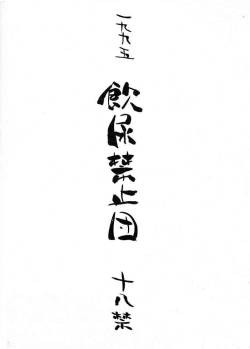 一九九五
飲尿禁止団
十八禁